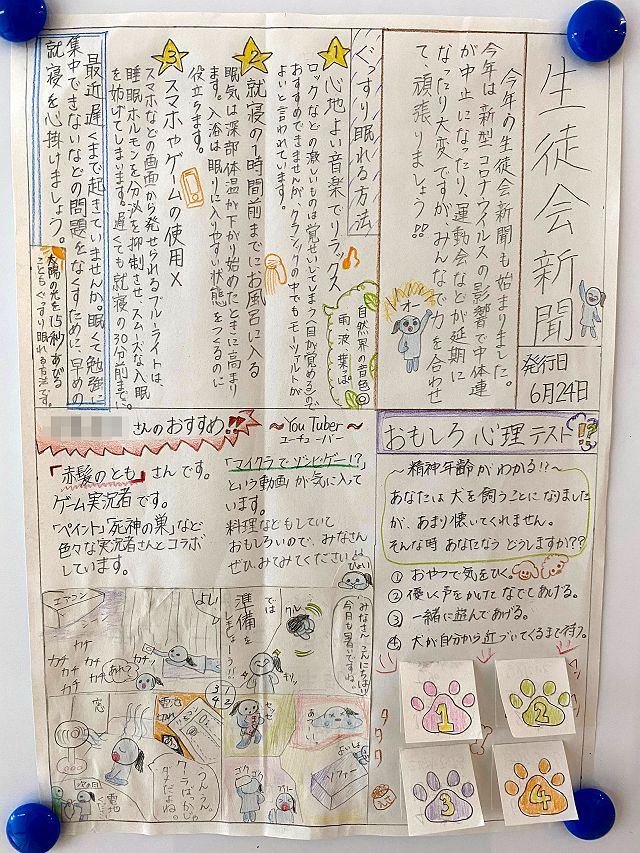 生徒会新聞
発行日
6月24日
今年の生徒会新聞も始まりました。
今年は新型コロナウイルスの影響で中体連
が中止になったり、運動会などが延期に
なったり大変ですがみんなで力を合わせ
て、頑張りましょう!!
オー
ぐっすり眠れる方法
1 心地よい音楽でリラックス
ロックなどの激しいものは覚せいしてしまう(目が覚める)ので
おすすめできませんが、クラシックの中でもモーツァルトが
よいと言われています。
自然界の音色◎
雨 波 葉っぱ
2 就寝の1時間前までにお風呂に入る
眠気は深部体温が下がり始めたときに高まり
ます。入浴は眠りに入りやすい状態をつくるのに
役立ちます。
3 スマホやゲームの使用×
スマホなどの画面から発せられるブルーライトは、
睡眠ホルモンを分泌を抑制させ、スムーズな入眠
を妨げてしまいます。遅くても就寝の30分前までに
最近遅くまで起きていませんか。眠くて勉強に
集中できないなどの問題をなくすために、早めの
就寝を心掛けましょう。
太陽の光を15秒あびる
こともぐっすり眠れる方法です。
さんのおすすめ!!
〜YouTuber〜
ユーチューバー
「赤髪のとも」さんです。
ゲーム実況者です。
「ぺいんと」「死神の巣」など
色々な実況者さんとコラボ
しています。
「マイクラでゾンビゲー!?」
という動画が気に入って
います。
料理などもしていて
おもしろいので、みなさん
ぜひみてみてください
おもしろ心理テスト!?
〜精神年齢がわかる!!〜
あなたは犬を飼うことになりました
が、あまり懐いてくれません。
そんな時あなたならどうしますか??
① おやつで気をひく。
② 優しく声をかけてなでてあげる。
③ 一緒に遊んであげる。
④ 犬が自分から近づいてくるまで待つ。
1
2
3
4
みなさんこんにちは!!
今日も暑いですね。
ぴょい
クル
では
準備を
しましょう!!
キリッ
よし
エアコン
カチ
カチ
カチ
カチ
カチッ
あれ?
1/2
3/4
あつい
よいしょ
ソファー
ゴク
ゴク
電池
切れ
うんうん
クーラーばかりじゃ
ダメだよね。
窓
次の日
電池
タタタ